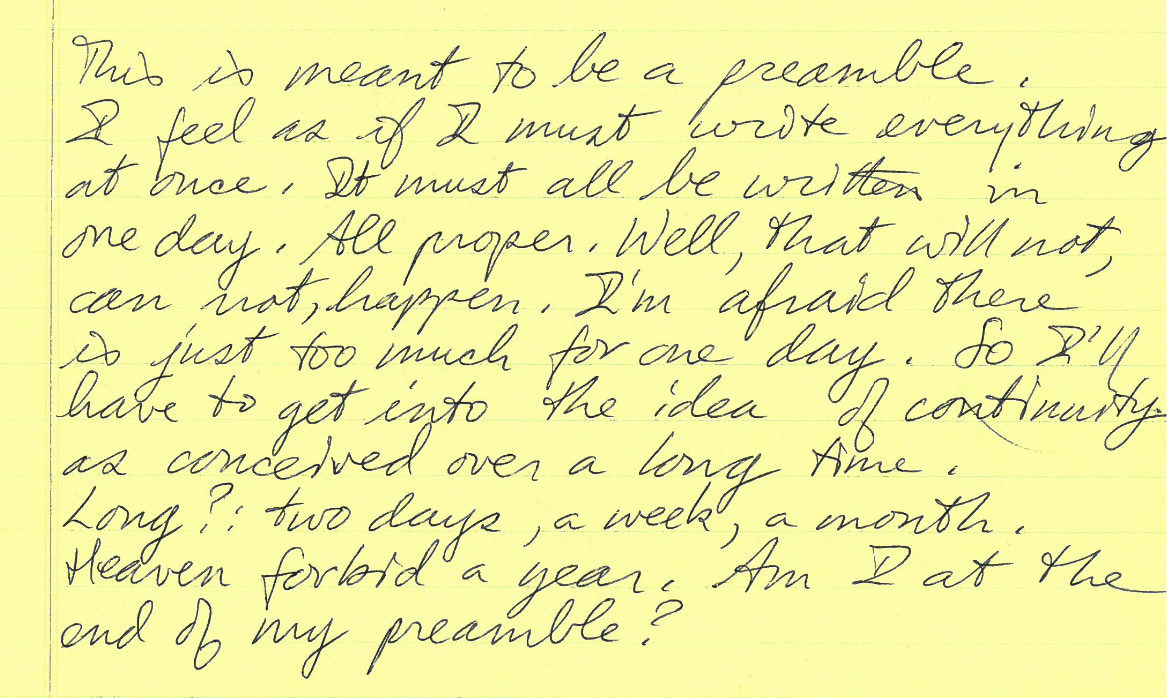 This is meant to be a preamble.
I feel as if I must write everything
at once. It must all be written in
one day. All proper. Well, that will not,
can not, happen. I'm afraid there
is just too much for one day. So I'll
have to get into the idea of continuity
as conceived over a long time.
Long?: two days, a week, a month.
Heaven forbid a year. Am I at the
end of my preamble?